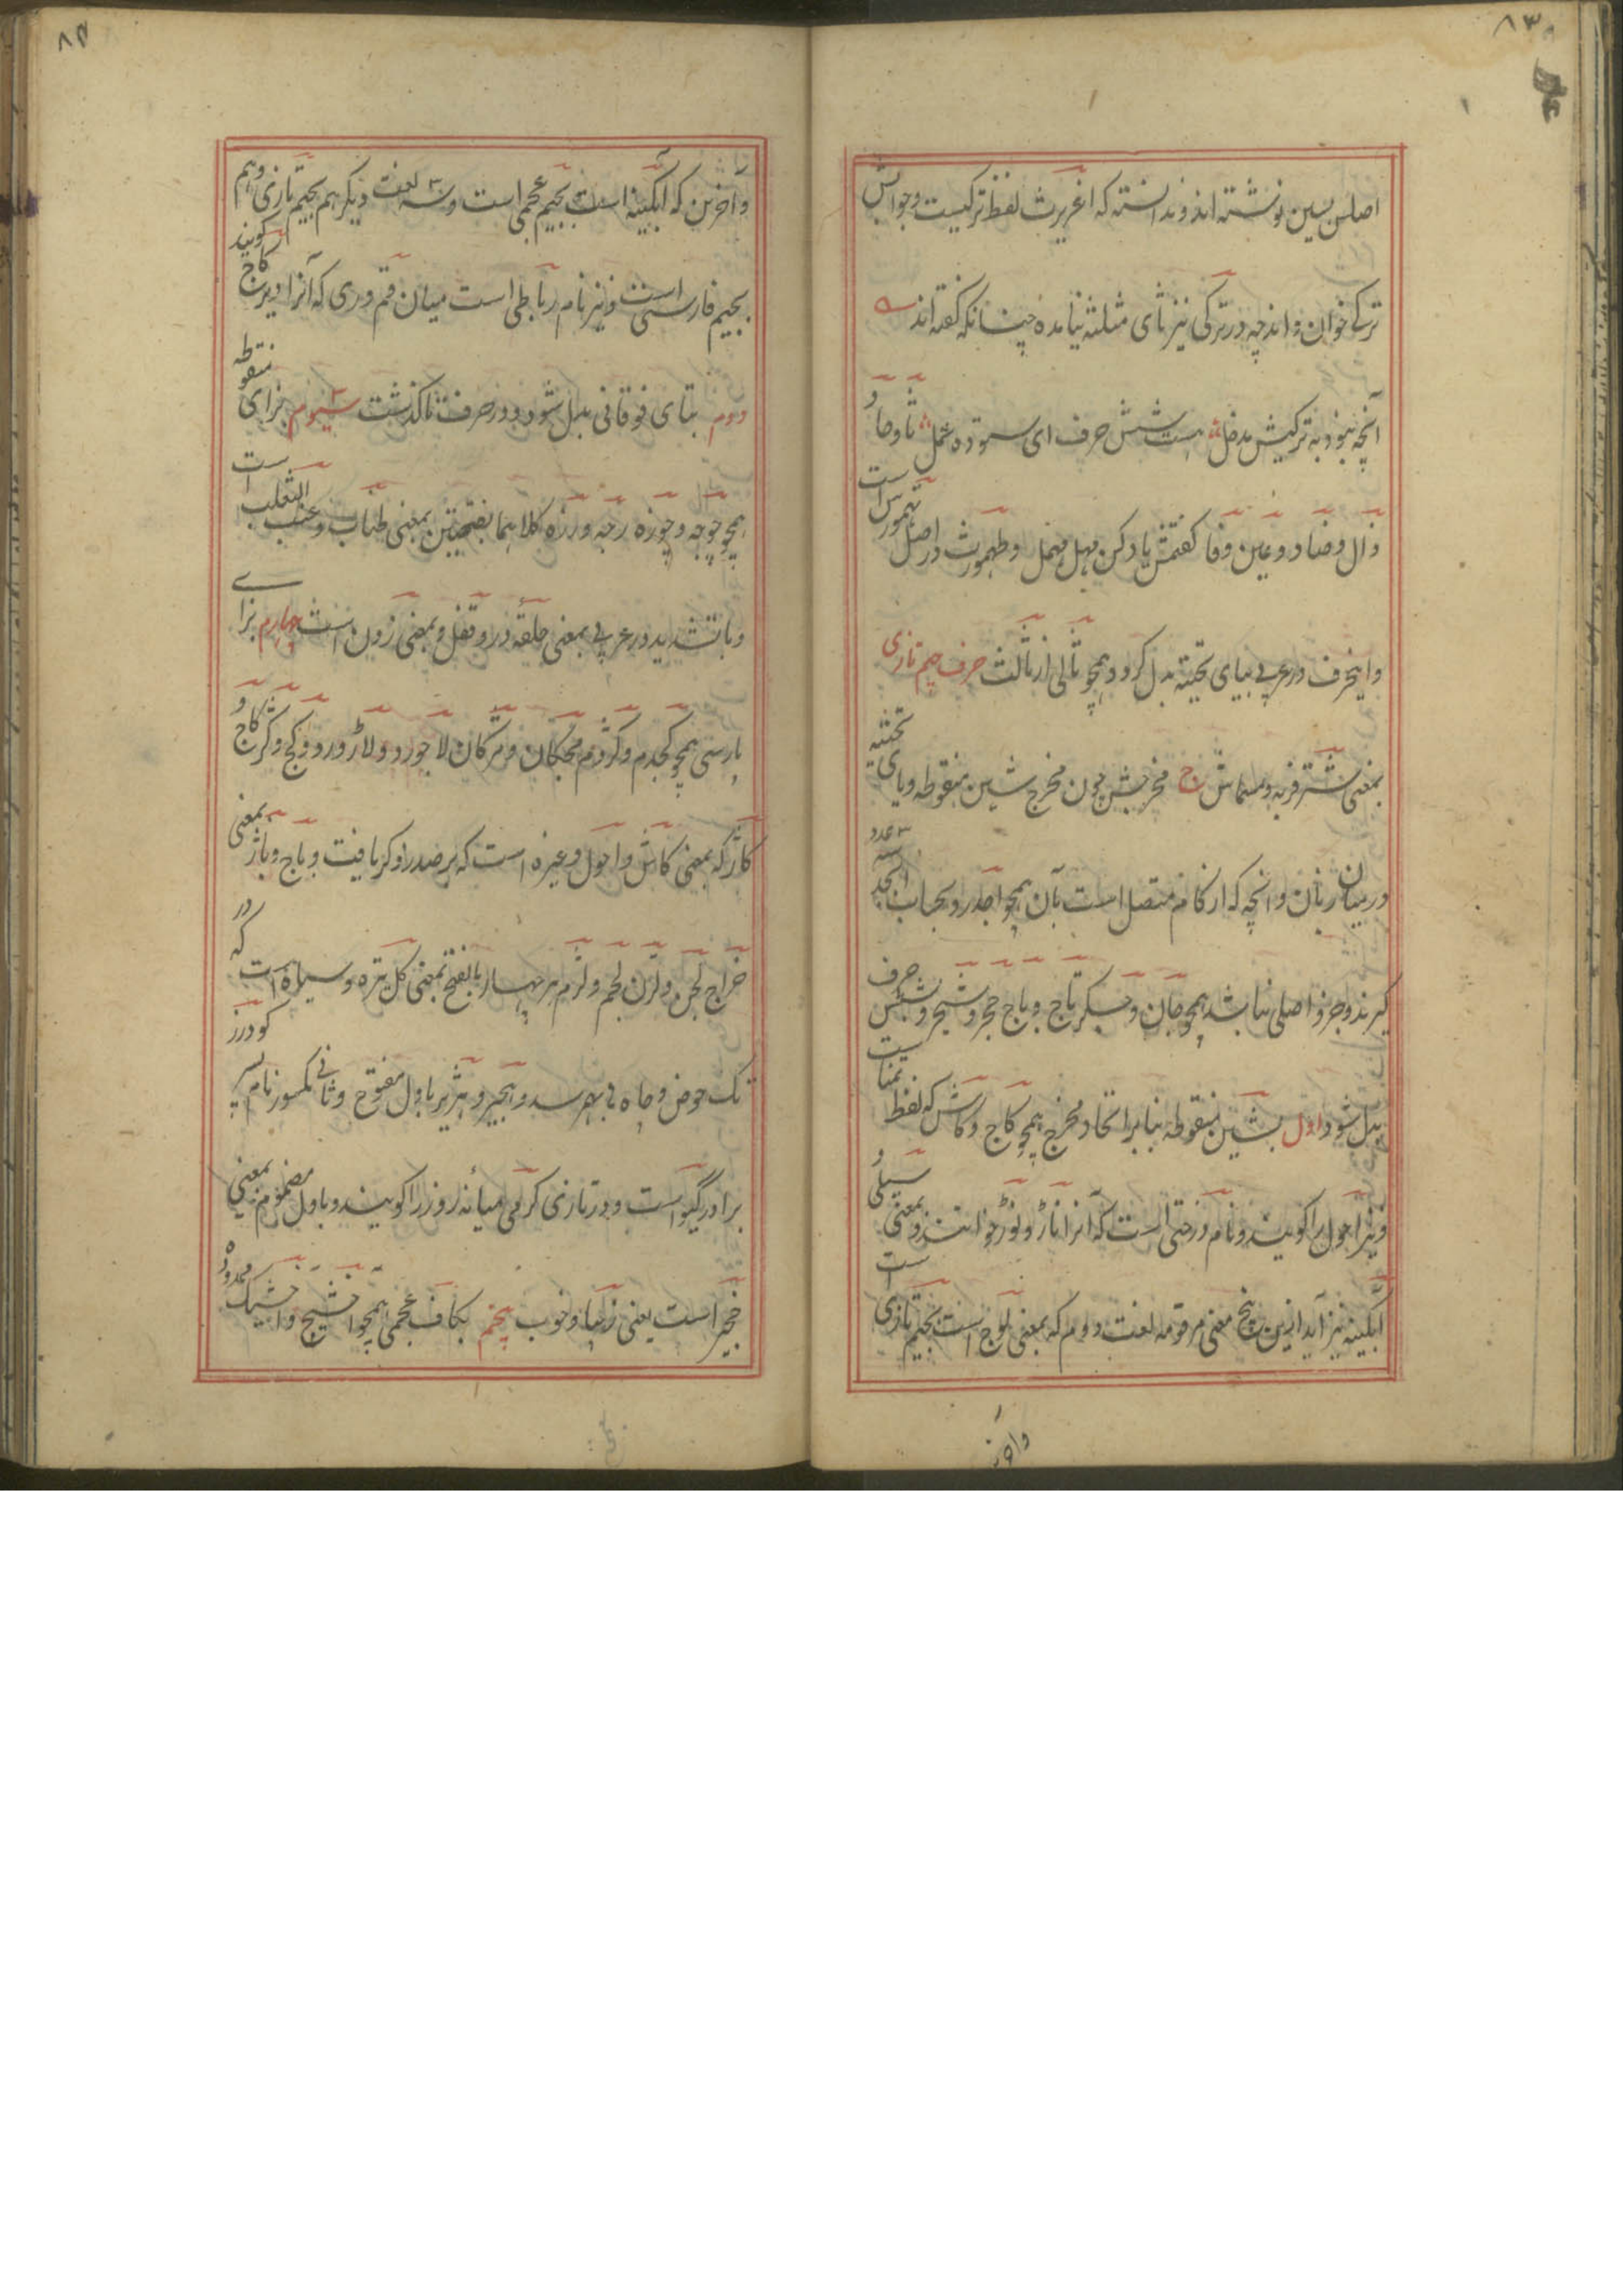 ۸۳
اصلس بسین نوشته اند و ندانسته که اغریرث لفظ ترکیست و جوابش
ترکی خوان داند چه در ترکی نیز ثای مثلثه نیامده چنانکه گفته اند
آنچه نبود به ترکیش مدخل هست شش حرف ای ستوده عمل ثا و حا و
ذال و ضاد و عین و فا گفتمش یاد کن مهل مهمل و طهمورث در اصل تهمورس است
و اینحرف در عربی بیای تحتیه بدل گردد همچو ثالی از ثالث حرف جیم تازی
بمعنی شتر فربه و مسماش ج مخرجش چون مخرج شین منقوطه و یای تحتیه
درمیان زبان و آنچه که از کام متصل است بآن همچو اجدر و بحساب ابجد سه عدد
گیرند و جزو اصلی نباشد همچو جان و جسگر تاج و باج حجر و شجر و شش حرف
بدل شود اول بشین منقوطه بنابر اتحاد مخرج همچو کاج و کاش که لفظ تمناست
و نیز احول را گویند و نام درختی است که آنرا ناژ و نوژ خوانند و بمعنی سیلی و
آبگینه نیز آید ازین پنج معنی مرقومه لغت دوم که بمعنی لوچ است بجیم تازی است
۸۴
و آخرین که آبگینه است بجیم عجمی است و سه لغت دیگر هم بجیم تازی و هم
بجیم فارسی است و نیز نام رباطی است میان قم و ری که آنرا دیر کاج گویند
دوم بتای فوقانی بدل شود و در حرف تا گذشت سیوم بزای منقوطه
همچو جوجه و جوزه رجه و رزه کلاهما بفتحتین بمعنی طناب و عنب الثعلب است
و باتشدید در عربی بمعنی حلقه در و قفل و بمعنی زدن است چهارم بزای
پارسی همچو کجدم و کژدم مجکان و مژکان لاجورد و لاژورد و کج و کژ کاج و
کاژ که بمعنی کاش و احول و غیره است که بر صدر ذکر یافت و باج و باژ بمعنی
خراج لجن و لژن لجم و لژم هر چهار بالفتح بمعنی گل تیره و سیاه است که در
تک حوض و چاه بهم رسد و هجیر و هژیر باول مفتوح و ثانی مکسور نام پسر گودرز
برادر گیو است و در تازی گرمی میانه روز را گویند و باول مضموم بمعنی
خجیر است یعنی زیبا و خوب پنجم بکاف عجمی همچو اخشیج و اخشیگ ممدوده